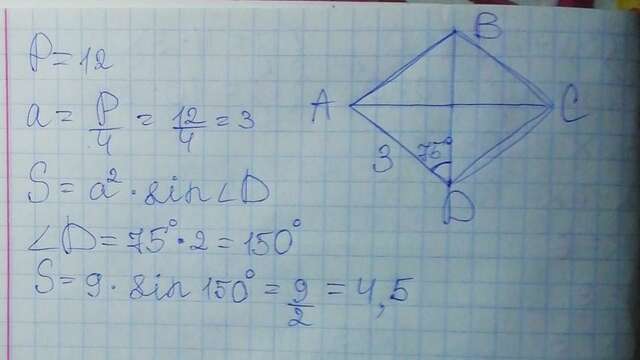 P = 12
a = P/4 = 12/4 = 3
S = a² · sin∠D
∠D = 75° · 2 = 150°
S = 9 · sin 150° = 9/2 = 4,5
B
A
C
3
75°
D